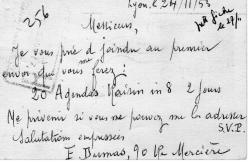 Lyon, le 24/11/53
256
Messieurs,
Je vous prie d joindre au premier
envoi que vous me ferez :
20 Agendas Raisin in 8 2 jours
Me prévenir si vous ne pouvez me la adresser
S.V.P.
Salutations empressées
E Dumas, 90 Rue Mercière